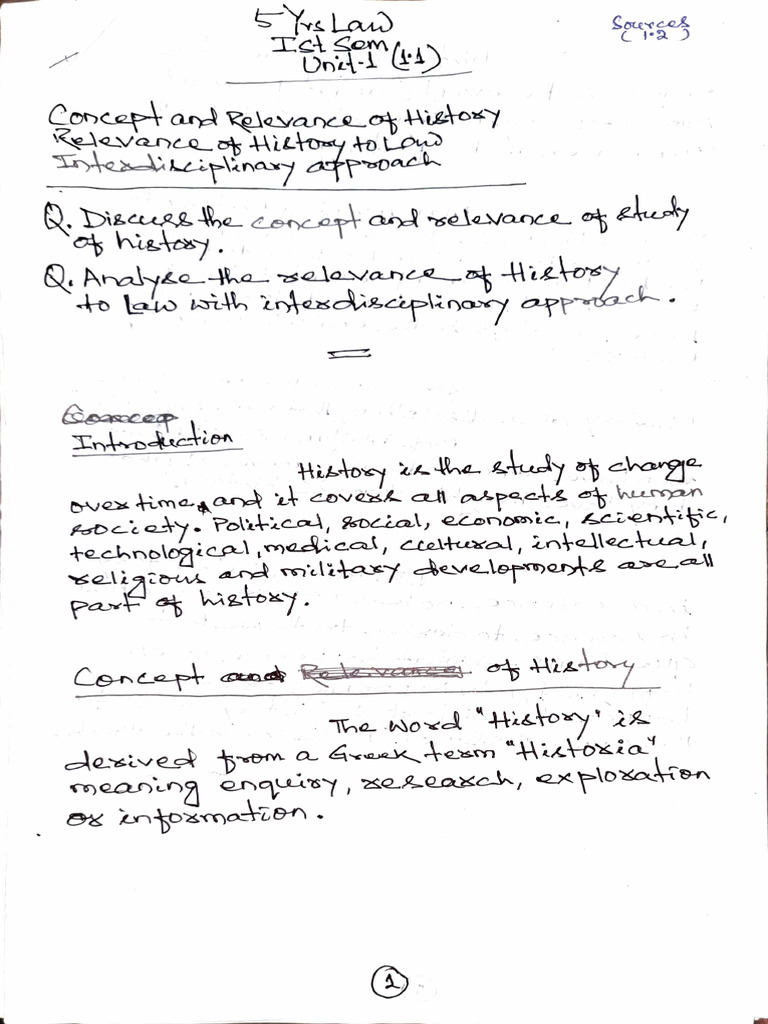 5 Yrs Law
Ist Sem
Unit-1 (1.1)
Sources
(1.2)
Concept and Relevance of History
Relevance of History to Law
Interdisciplinary approach
Q. Discuss the concept and relevance of study
of history.
Q. Analyse the relevance of History
to Law with interdisciplinary approach.
Concep
Introduction
History is the study of change
over time, and it covers all aspects of human
society. Political, social, economic, scientific,
technological, medical, cultural, intellectual,
religious and military developments are all
part of history.
Concept and Relevance of History
The word "History" is
derived from a Greek term "Historia"
meaning enquiry, research, exploration
or information.
1